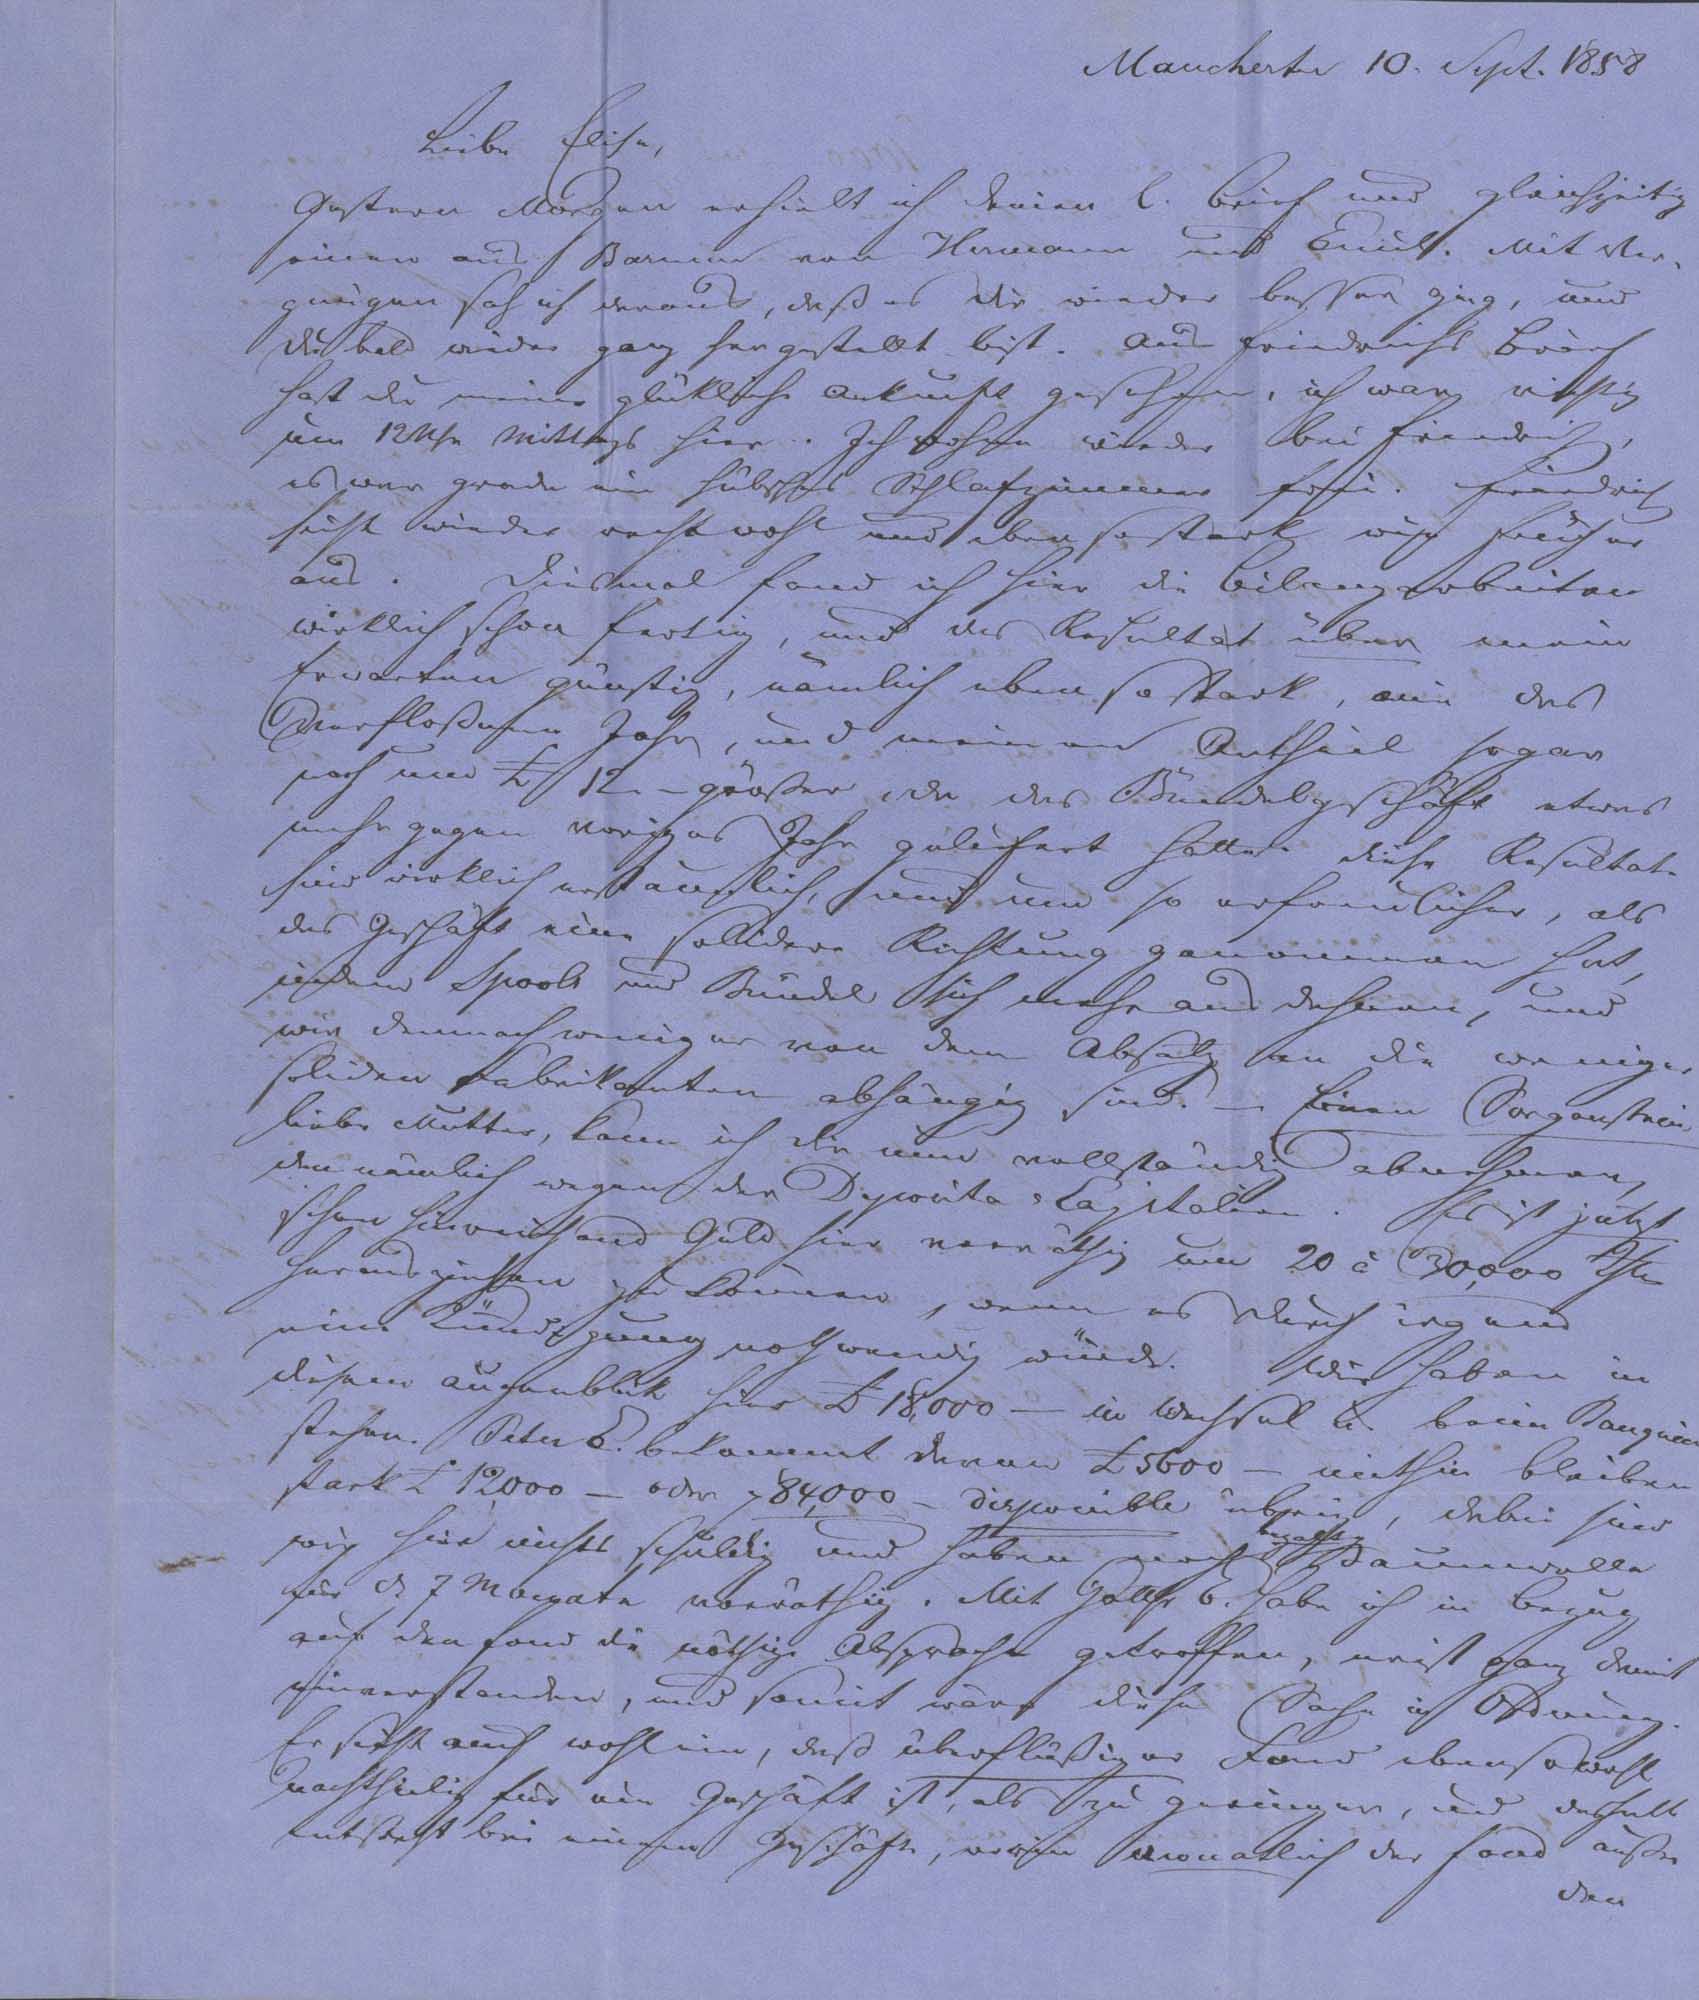 Manchester 10. Sept. 1858
Liebe Elise,
Gestern Morgen erhielt ich deinen l. Brief und gleichzeitig
einen aus Barmen von Hermann und Emil. Mit Ver-
gnügen sah ich daraus, daß es dir wieder besser ging, und
du bald wieder ganz hergestellt bist. Aus Friedrichs Brief
hast du meine glükliche Ankunft gesehen, ich war richtig
um 12 Uhr Mittags hier. Ich wohne wieder bei Friedrich,
es war grade ein hübsches Schlafzimmer frei. Friedrich
sieht wieder recht wohl und eben so stark wie früher
aus. Diesmal fand ich hier die Bilanzarbeiten
wirklich schon fertig, und das Resultat über mein
Erwarten günstig, nämlich eben so stark, wie das
verfloßene Jahr, und meinen Antheil sogar
noch um £ 12.– größer, da das Bündelgeschäft etwas
mehr gegen voriges Jahr geliefert hatte. Diese Resultate
sind wirklich erstaunlich, und um so erfreulicher, als
das Geschäft eine sollidere Richtung genommen hat,
indem Spools und Bündel sich mehr ausdehnen, und
wir demnach weniger von dem Absatz an die weniger
soliden Fabrikanten abhängig sind. – Einen Sorgenstein,
liebe Mutter, kann ich dir nun vollständig abnehmen,
den nämlich wegen der Deposita-Capitalien. Es ist jetzt
schon hinreichend Geld hier vorräthig um 20 à 30,000 Thlr
herausziehen zu können, wenn es durch irgend
eine Kündigung nothwendig würde. Wir haben in
diesem Augenblik hier £ 18,000 – in Wechsel u. beim Banquier
stehen. Peter E. bekommt davon £ 5600 – mithin bleiben
stark £ 12,000 – oder 84,000 – disponible übrig, dabei sind
wir hier nichts schuldig und haben noch bezahlte Baumwolle
für 7 Monate vorräthig. Mit Gottfr. E. habe ich in Bezug
auf den Fond die nöthige Absprache getroffen, er ist ganz damit
einverstanden, und somit wäre diese Sache in Ordnung.
Er sieht auch wohl ein, daß überflüßiger Fond ebensowohl
nachtheilig für ein Geschäft ist, als zu geringer, und deshalb
entsteht bei einem Geschäft, worin monatlich der Fond außer
den